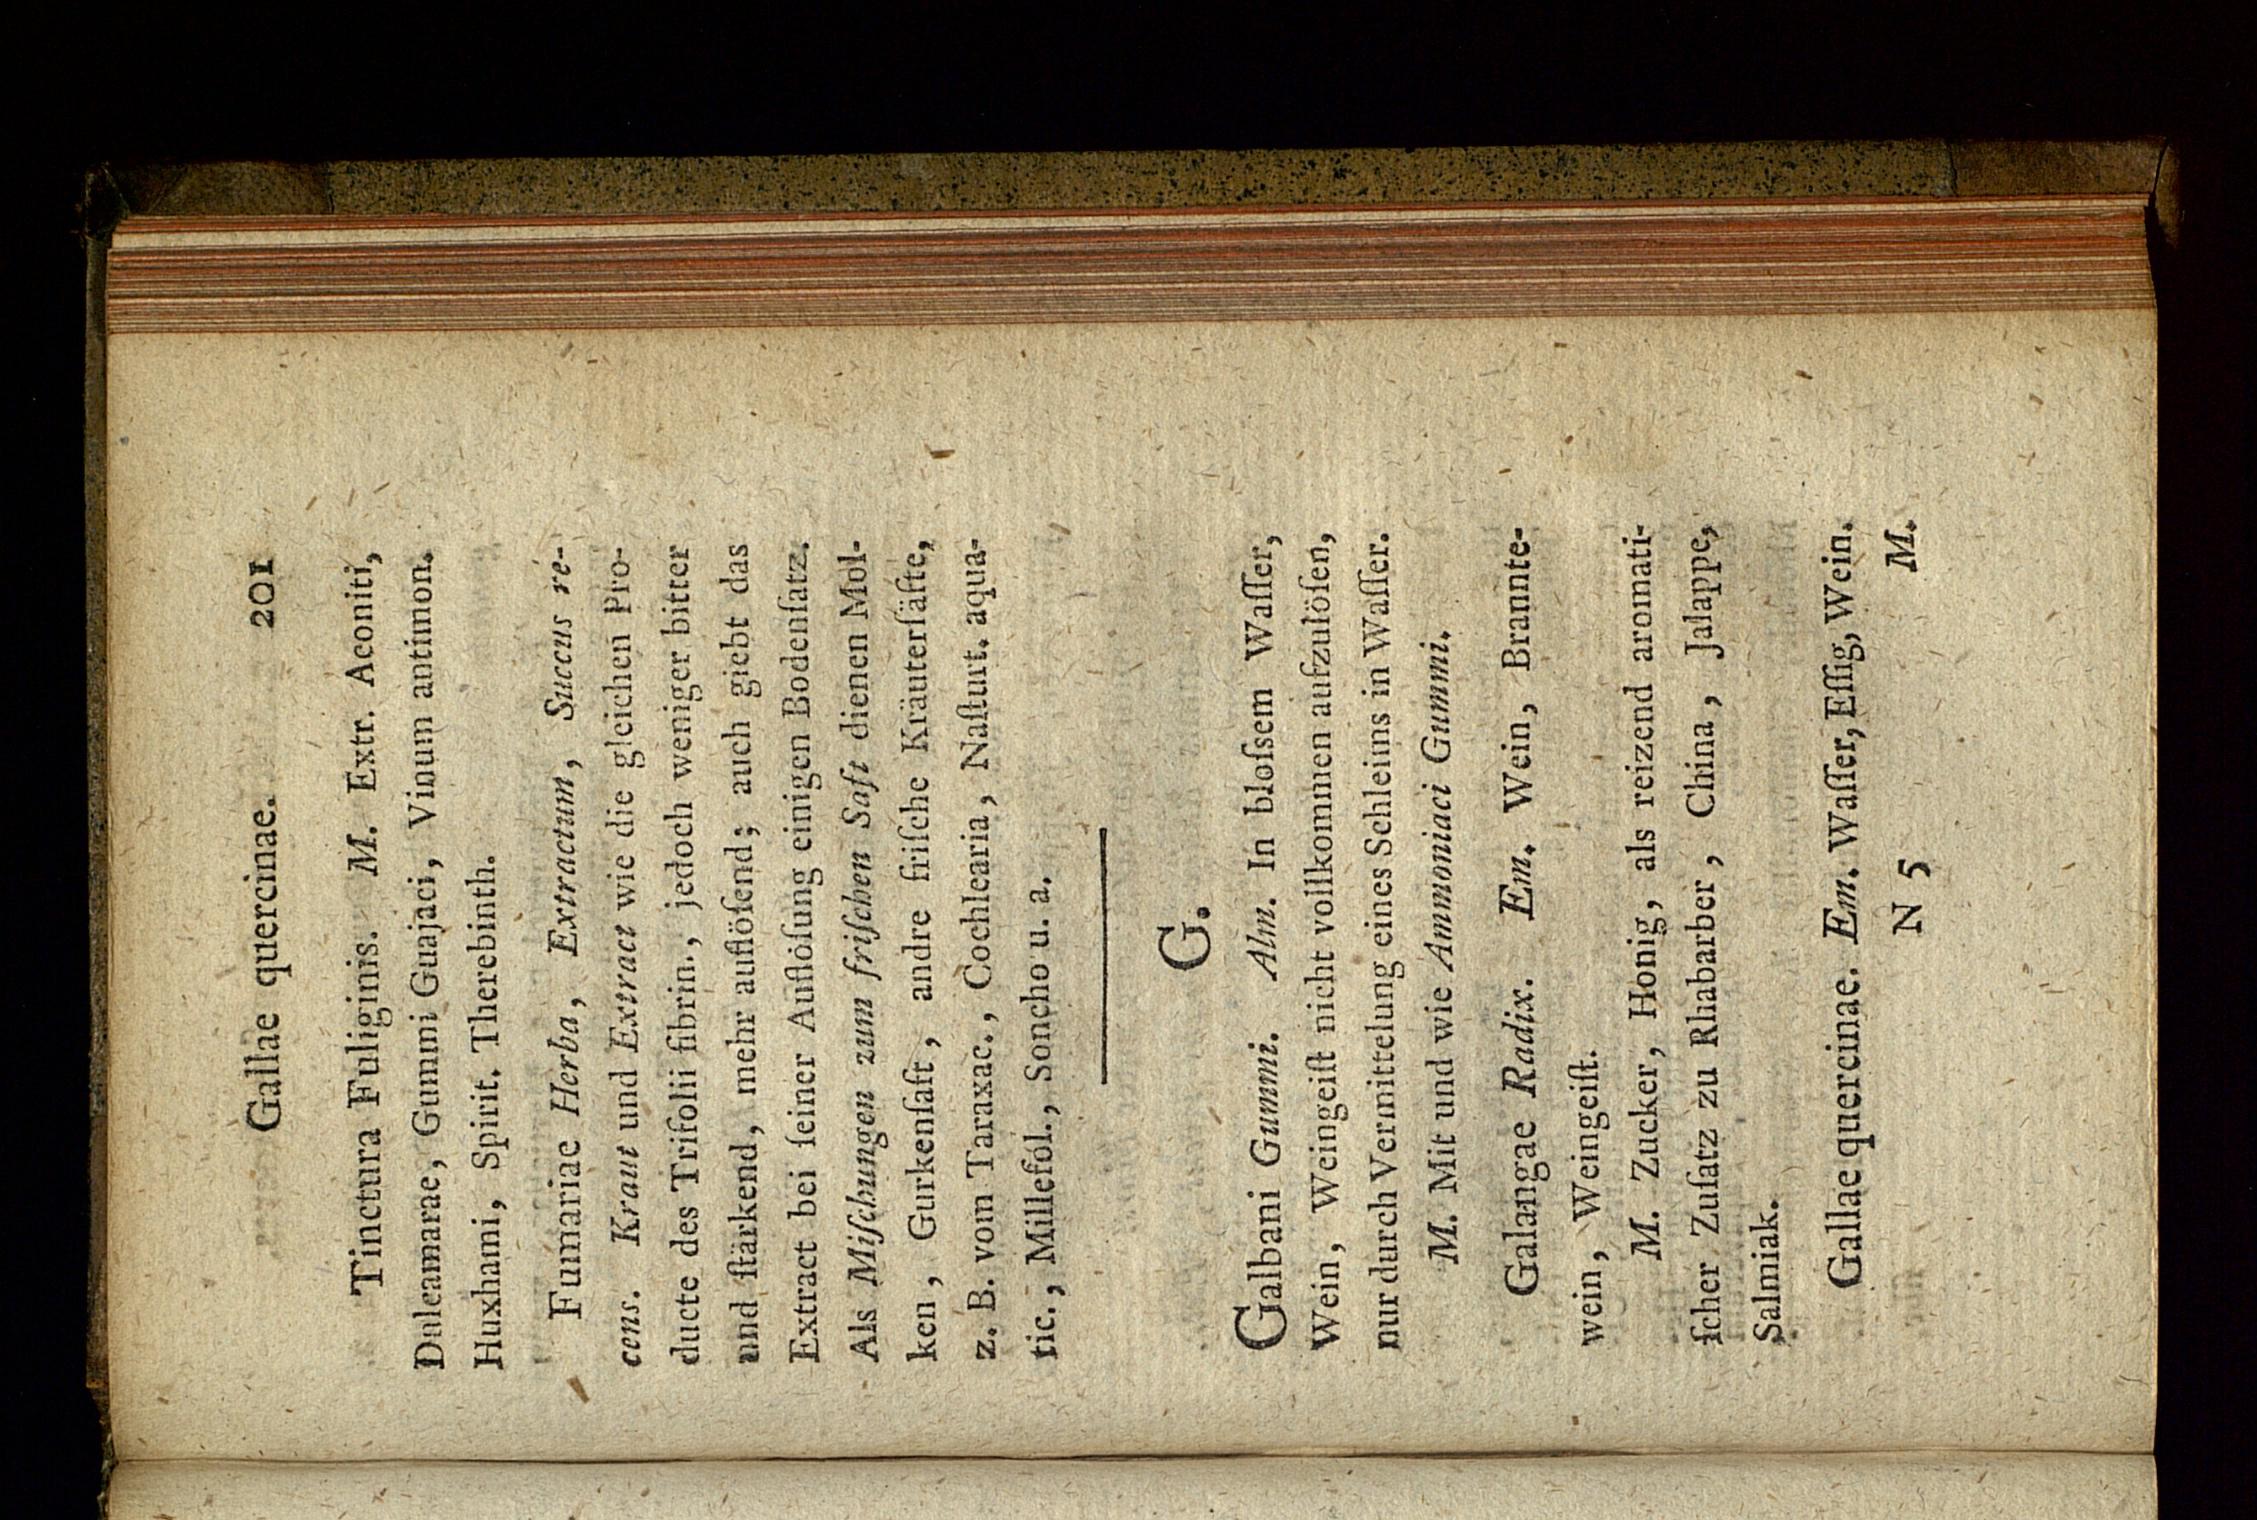 Gallae quercinae. 201
Tinctura Fuliginis. M. Extr. Aconiti,
Dulcamarae, Gummi Guajaci, Vinum antimon.
Huxhami, Spirit. Therebinth.
Fumariae Herba, Extractum, Succus re-
cens. Kraut und Extract wie die gleichen Pro-
ducte des Trifolii fibrin., jedoch weniger bitter
und ſtärkend, mehr auflöſend; auch giebt das
Extract bei ſeiner Auflöſung einigen Bodenſatz.
Als Miſchungen zum friſchen Saft dienen Mol-
ken, Gurkenſaft, andre friſche Kräuterſäfte,
z. B. vom Taraxac., Cochlearia, Naſturt. aqua-
tic., Millefol., Soncho u. a.
G.
Galbani Gummi. Alm. In bloſsem Waſſer,
Wein, Weingeiſt nicht vollkommen aufzulöſen,
nur durch Vermittelung eines Schleims in Waſſer.
M. Mit und wie Ammoniaci Gummi.
Galangae Radix. Em. Wein, Brannte-
wein, Weingeiſt.
M. Zucker, Honig, als reizend aromati-
ſcher Zuſatz zu Rhabarber, China, Jalappe,
Salmiak.
Gallae quercinae. Em. Waſſer, Eſſig, Wein.
N 5 M.